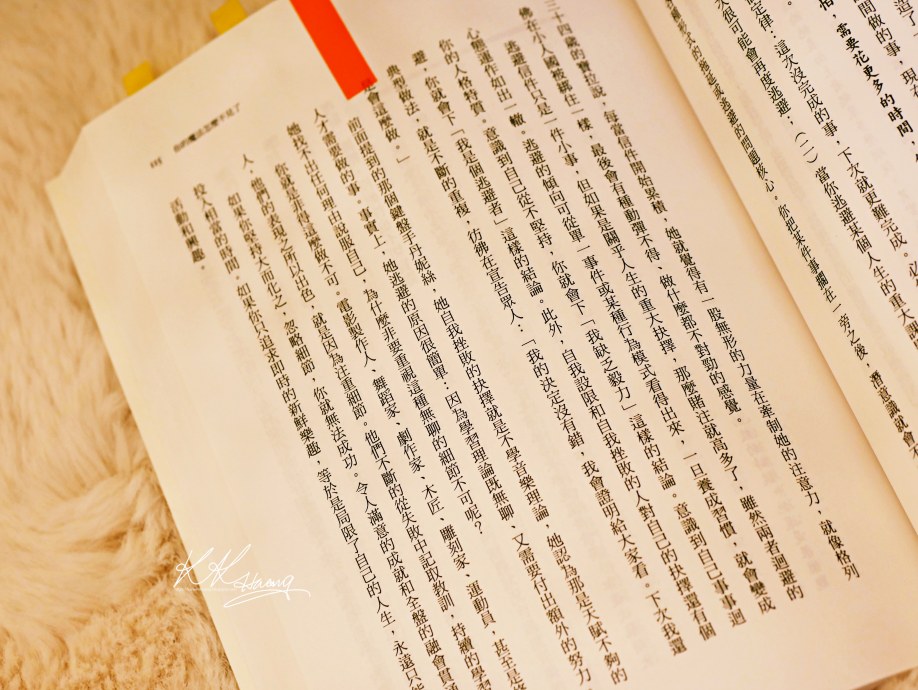 造了
括，需要花更多的時間，
間做的事，現
定律：這次沒完成的事，下次就更難完成。必
次很可能會再度逃避，（二）當你逃避某個人生的重大
的癥結或逃避的問題核心。你把某件事擱在一旁之後，潛意識就會不
三十四歲的賈拉說，每當信件開始累積，她就覺得有一股無形的力量在牽制她的注意力，就像格列
佛在小人國被綁住一樣，最後會有種動彈不得、做什麼都不對勁的感覺。
逃避信件只是一件小事，但如果是關乎人生的重大抉擇，那麼賭注就高多了，雖然兩者迴避的
心態運作如出一轍。逃避的傾向可從單一事件或某種行為模式看得出來，一旦養成習慣，就會變成
你的人格特質。意識到自己從不堅持，你就會下「我缺乏毅力」這樣的結論。意識到自己事事迴
避，你就會下「我是個逃避者」這樣的結論。此外，自我設限和自我挫敗的人對自己的抉擇還有個
典型做法，就是不斷的重複，彷彿在宣告眾人：「我的決定沒有錯，我會證明給大家看。下次我還
是會這麼做。」
前面提到的那個鍵盤手丹妮絲，她自我挫敗的抉擇就是不學音樂理論，她認為那是天賦不夠的
人才需要做的事。事實上，她逃避的原因很簡單：因為學習理論既無聊、又需要付出額外的努力
她找不出任何理由說服自己，為什麼非要重視這種無聊的細節不可呢？
你就是非得這麼做不可。電影製作人、舞蹈家、劇作家、木匠、雕刻家、運動員，甚至是
人，他們的表現之所以出色，就是因為注重細節。他們不斷的從失敗中記取教訓，持續的學習
如果你堅持大而化之，忽略細節，你就無法成功。令人滿意的成就和全盤的融會貫通
投入相當的時間。如果你只追求即時的新鮮樂趣，等於是局限了自己的人生，永遠只能
活動和興趣。
你的魔法怎麼不見了
KK Huang